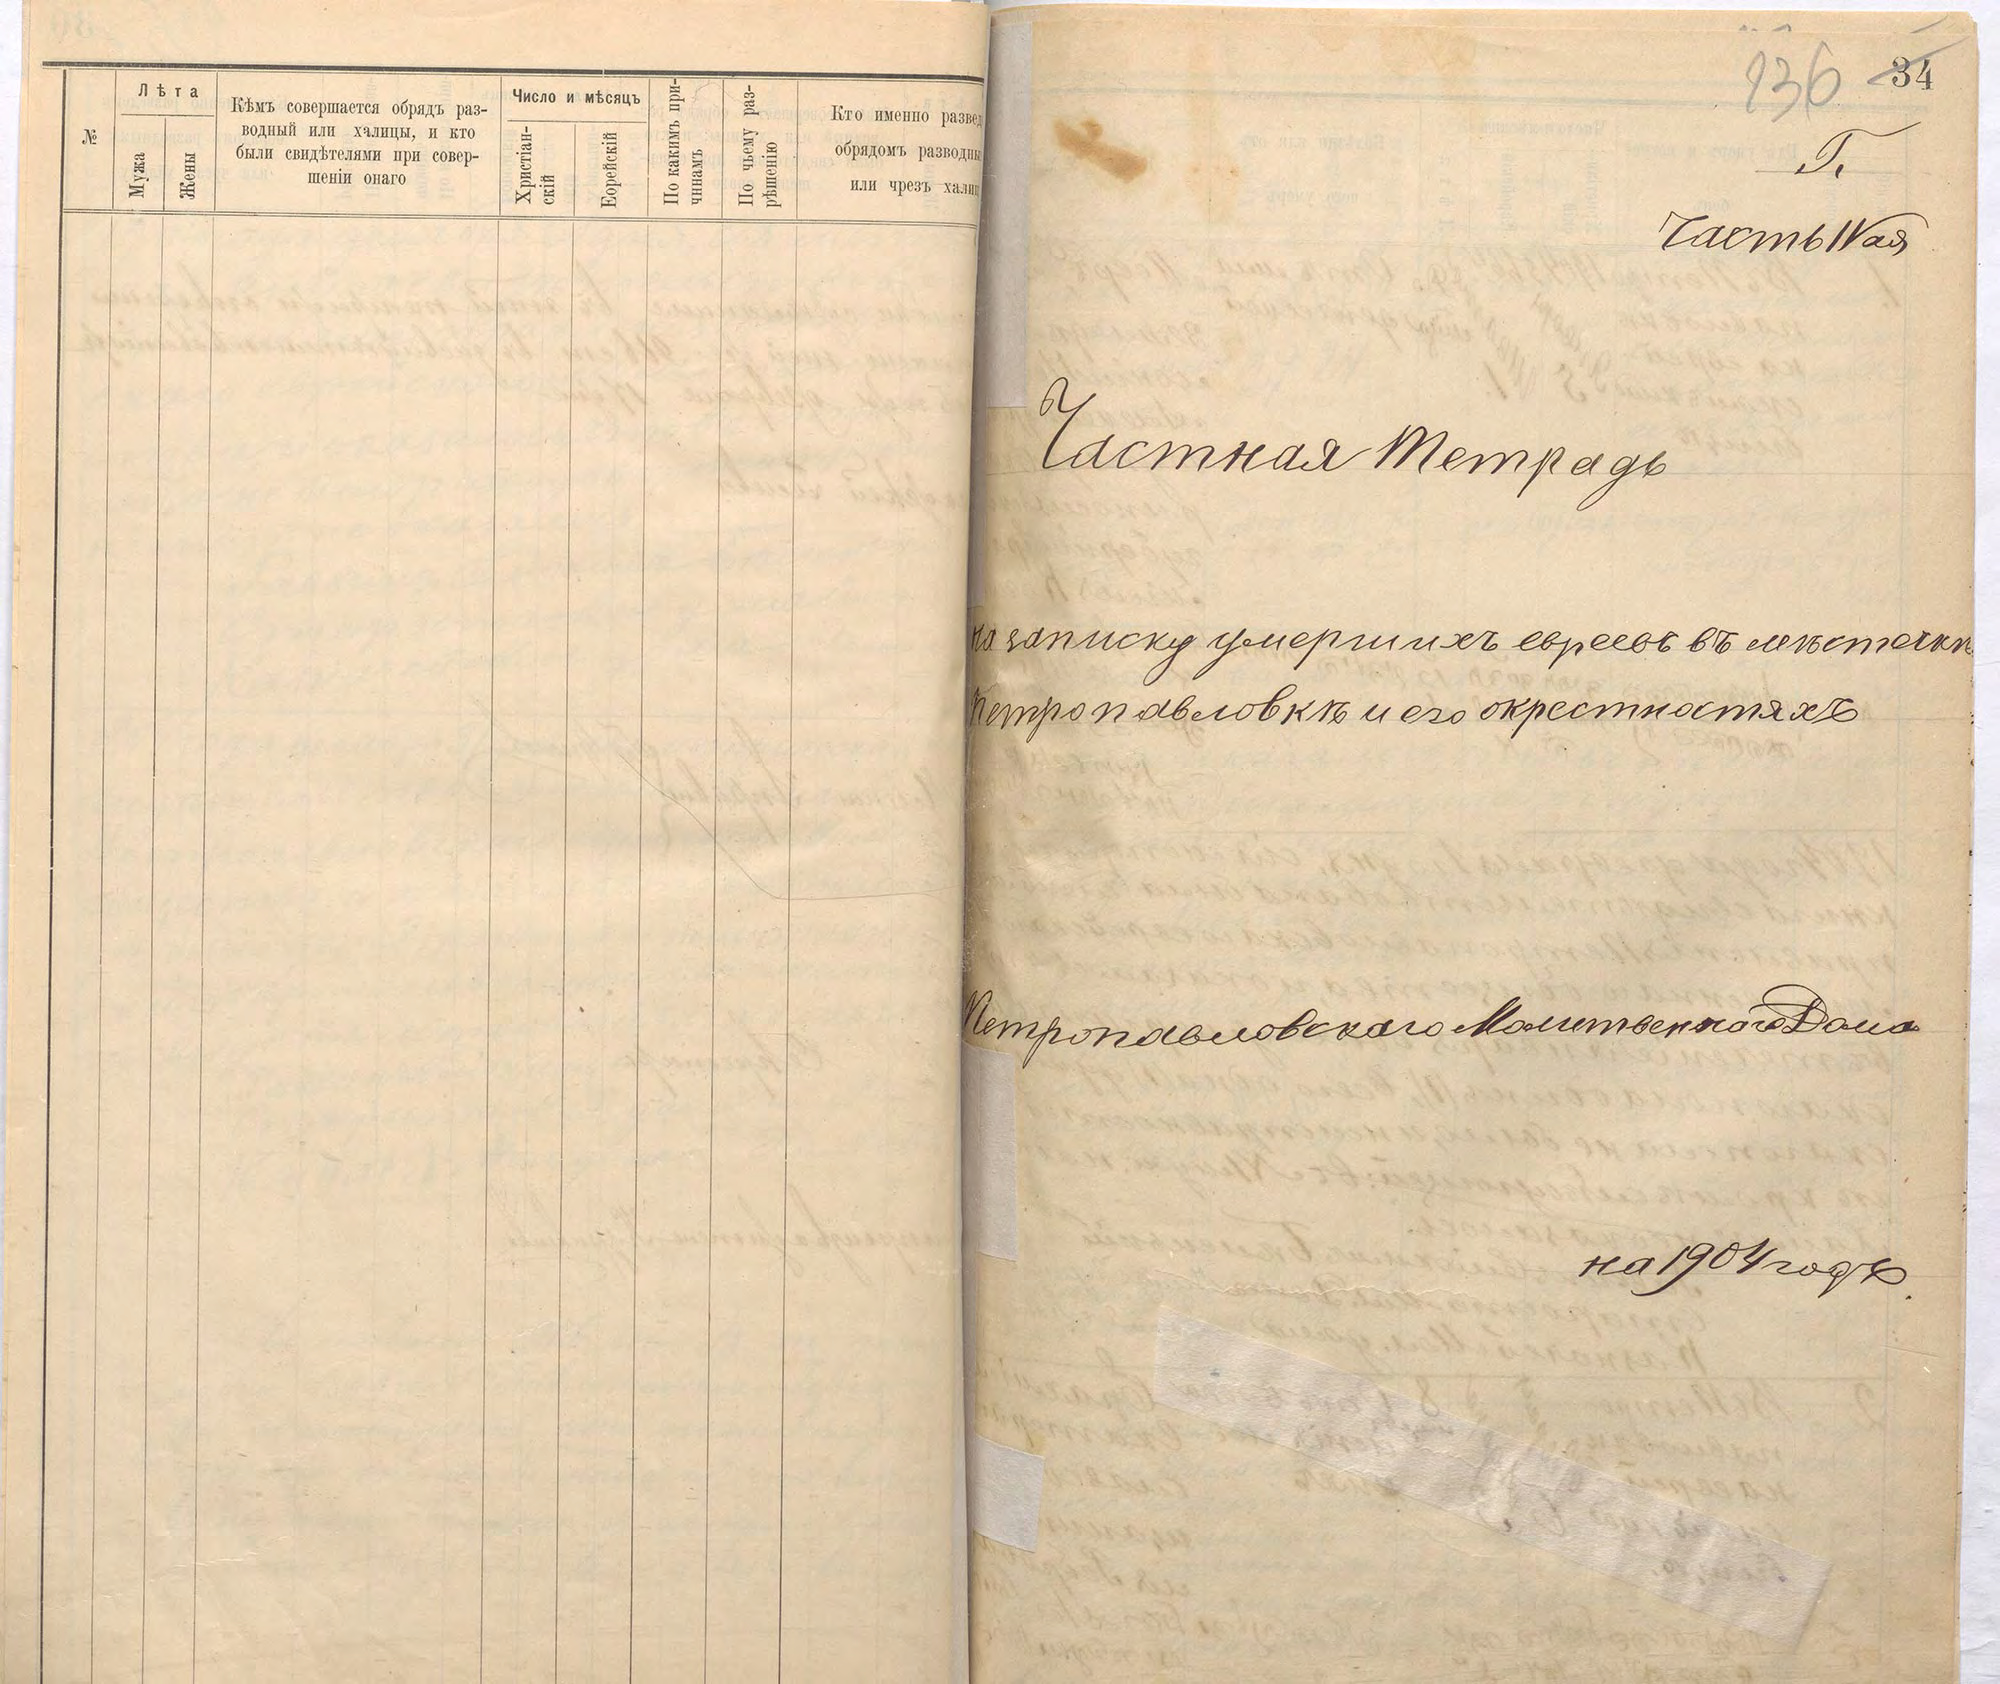 №
Лѣта
Мужа
Жены
Кѣмъ совершается обрядъ раз-
водный или халицы, и кто
были свидѣтелями при совер-
шеніи онаго
Число и мѣсяцъ
Христіан-
скій
Еврейскій
По какимъ при-
чинамъ
По чьему раз-
рѣшенію
Кто именно развед
обрядомъ разводн
или чрезъ хали
136 34
Г.
Часть IVая
Частная Тетрадь
на записку умершихъ евреевъ въ мѣстечкѣ
Петропавловкѣ и его окрестностяхъ
Петропавловскаго Молитвеннаго Дома
на 1904 годъ.